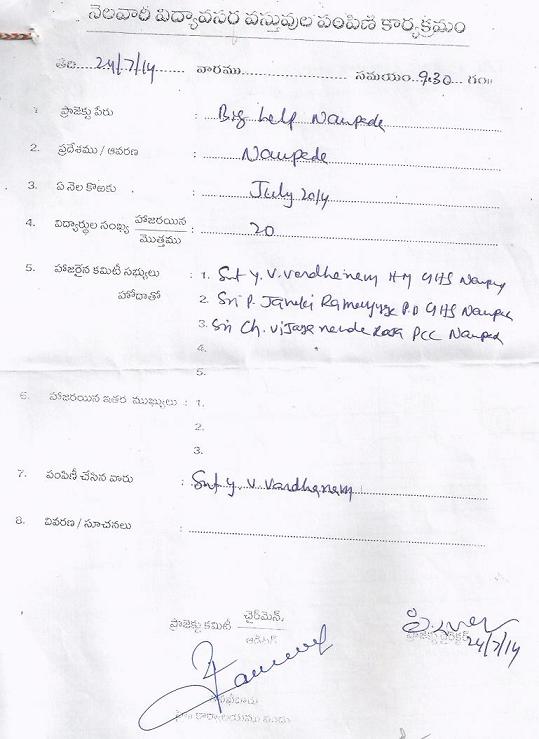 నెలవారీ విద్యావసర వస్తువుల పంపిణి కార్యక్రమం
తేది.. 24/7/14 ........ వారము........................ సమయం. 9:30 ... గం॥
1. ప్రాజెక్టు పేరు : Big help Naupada
2. ప్రదేశము / ఆవరణ : Naupada
3. ఏ నెల కొఱకు : July 2014
4. విద్యార్థుల సంఖ్య హాజరయిన / మొత్తము : 20
5. హాజరైన కమిటీ సభ్యులు : 1. Smt Y. V. Vardhanam HM GHS
హోదాతో 2. Sri P. Janaki P.D GHS Naupada
3. Sri Ch. PCC Naupada
4.
5.
6. హాజరయిన ఇతర ముఖ్యులు : 1.
2.
3.
7. పంపిణీ చేసిన వారు : Smt Y. V. Vardhanam
8. వివరణ / సూచనలు :
ప్రాజెక్టు కమిటీ ఛైర్మెన్,
ప్రాజెక్టు డైరెక్టర్ 24/7/14